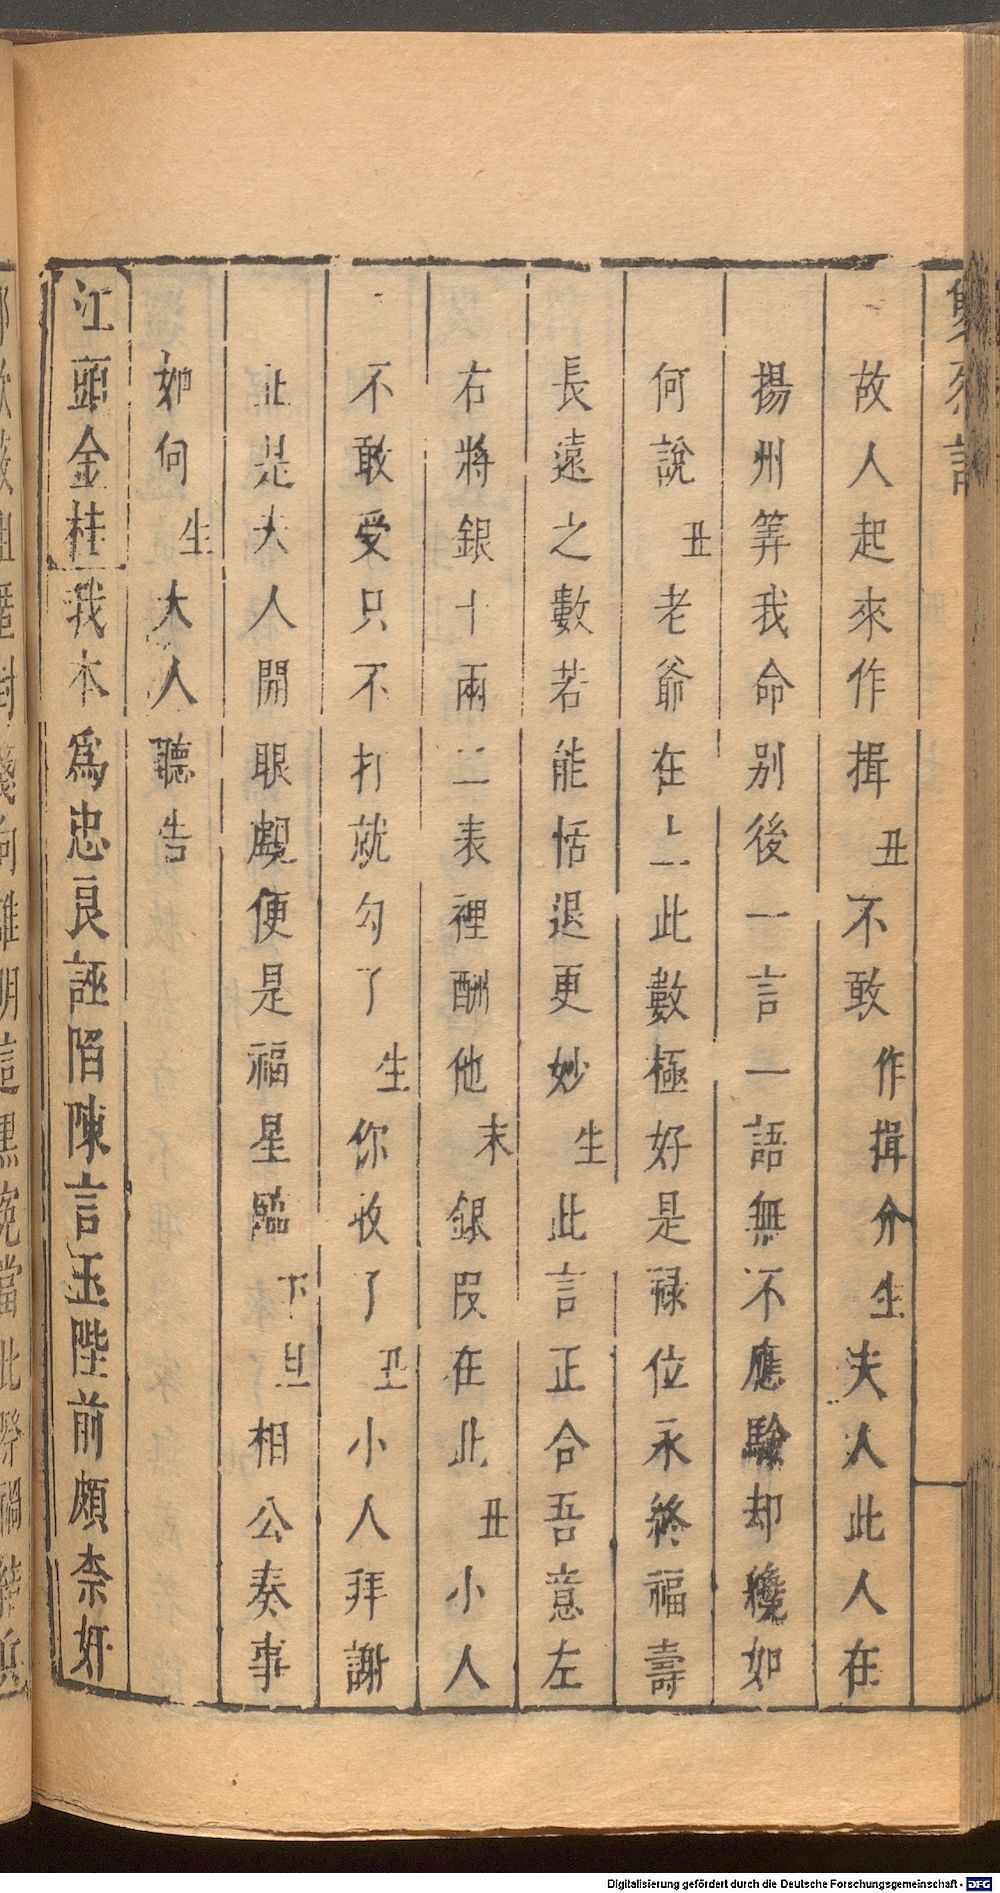 故人起來作揖丑不敢作揖介生夫人此人在
揚州筭我命别後一言一語無不應驗却纔如
何說丑老爺在上此數極好是禄位永終福壽
長遠之數若能恬退更妙生此言正合吾意左
右將銀十兩二表裡酬他末銀段在此丑小人
不敢受只不打就勾了生你收了丑小人拜謝
正是大人開眼覷便是福星臨下旦相公奏事
如何生大人聽告
江頭金桂我本爲忠良誣陷陳言玉陛前頗柰奸
Digitalisierung gefördert durch die Deutsche Forschungsgemeinschaft - DFG